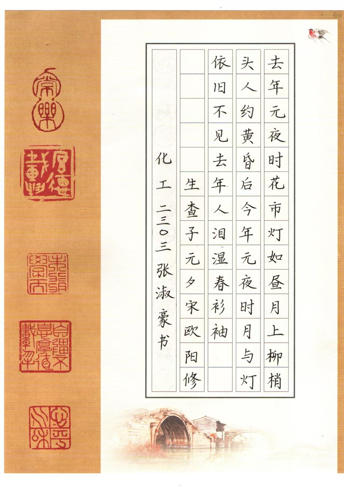 去年元夜时花市灯如昼月上柳梢
头人约黄昏后今年元夜时月与灯
依旧不见去年人泪湿春衫袖
生查子元夕宋欧阳修
化工二二〇三张淑豪书